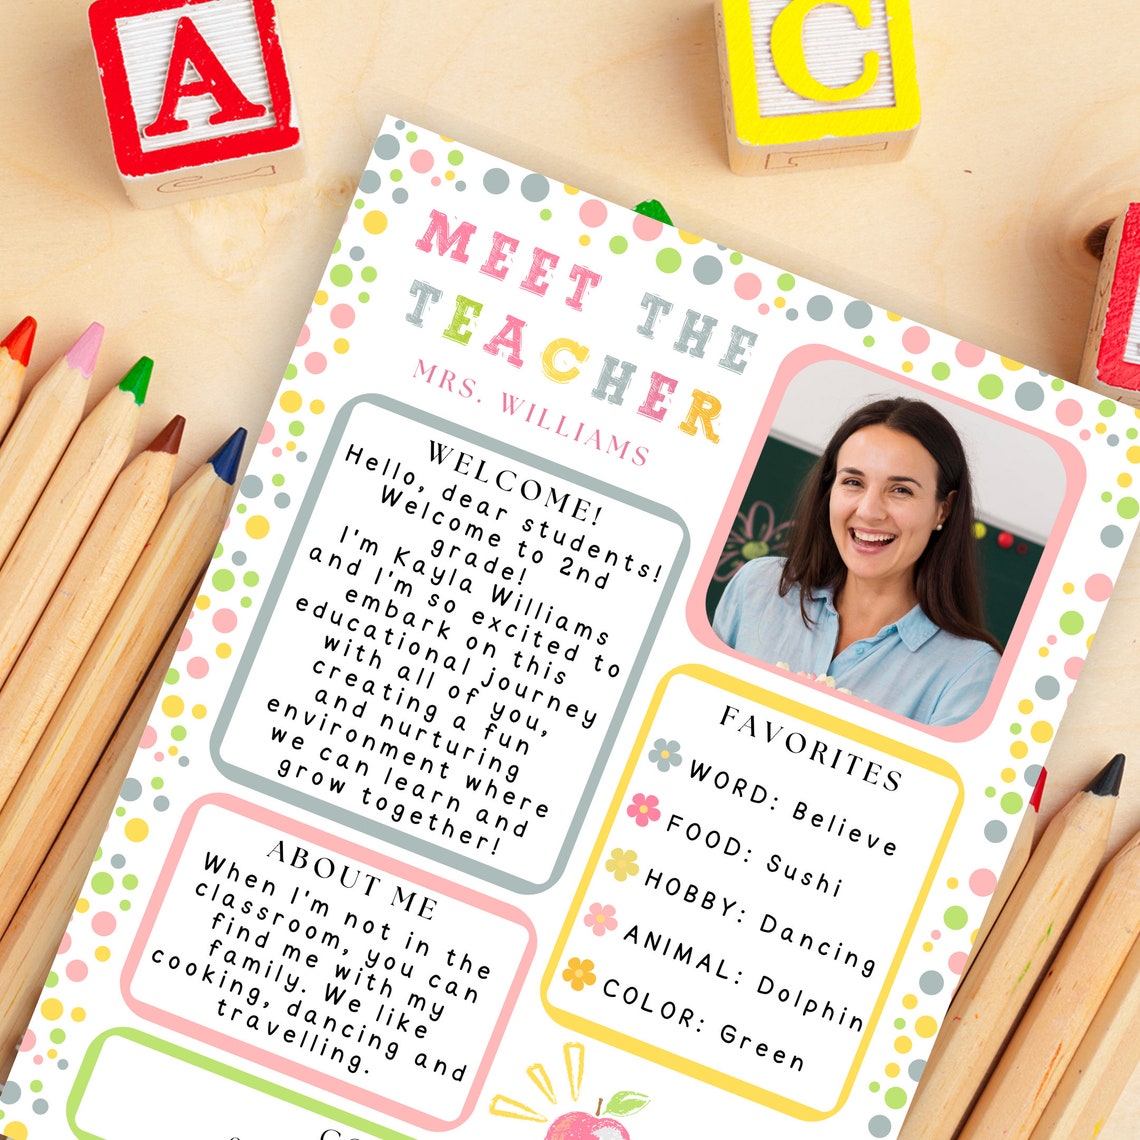 A
C
MEET THE
TEACHER
MRS. WILLIAMS
WELCOME!
Hello, dear students!
Welcome to 2nd
grade!
I'm Kayla Williams
and I'm so excited to
embark on this
educational journey
with all of you,
creating a fun
and nurturing
environment where
we can learn and
grow together!
ABOUT ME
When I'm not in the
classroom, you can
find me with my
family. We like
cooking, dancing and
travelling.
FAVORITES
WORD: Believe
FOOD: Sushi
HOBBY: Dancing
ANIMAL: Dolphin
COLOR: Green